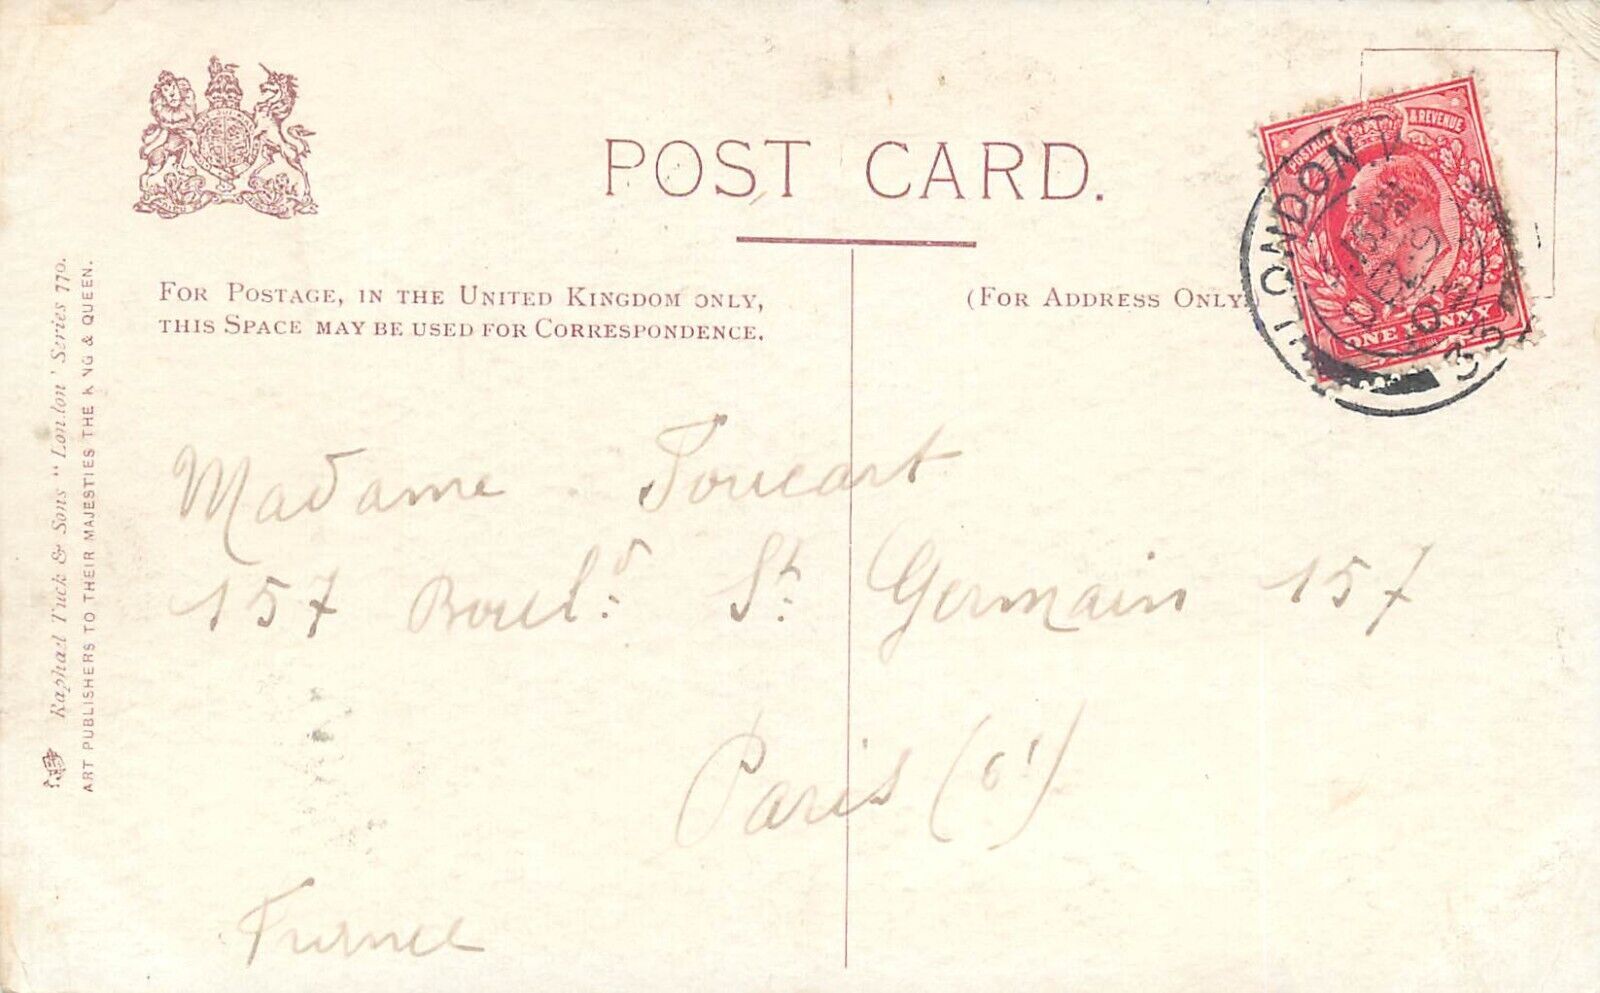 POST CARD.
FOR POSTAGE, IN THE UNITED KINGDOM ONLY,
THIS SPACE MAY BE USED FOR CORRESPONDENCE.
(FOR ADDRESS ONLY
POSTAGE & REVENUE
ONE PENNY
LONDON
Raphael Tuck & Sons "London" Series 770.
ART PUBLISHERS TO THEIR MAJESTIES THE KING & QUEEN.
Madame Foucart
157 Boul.d St Germain 157
Paris (6e)
France